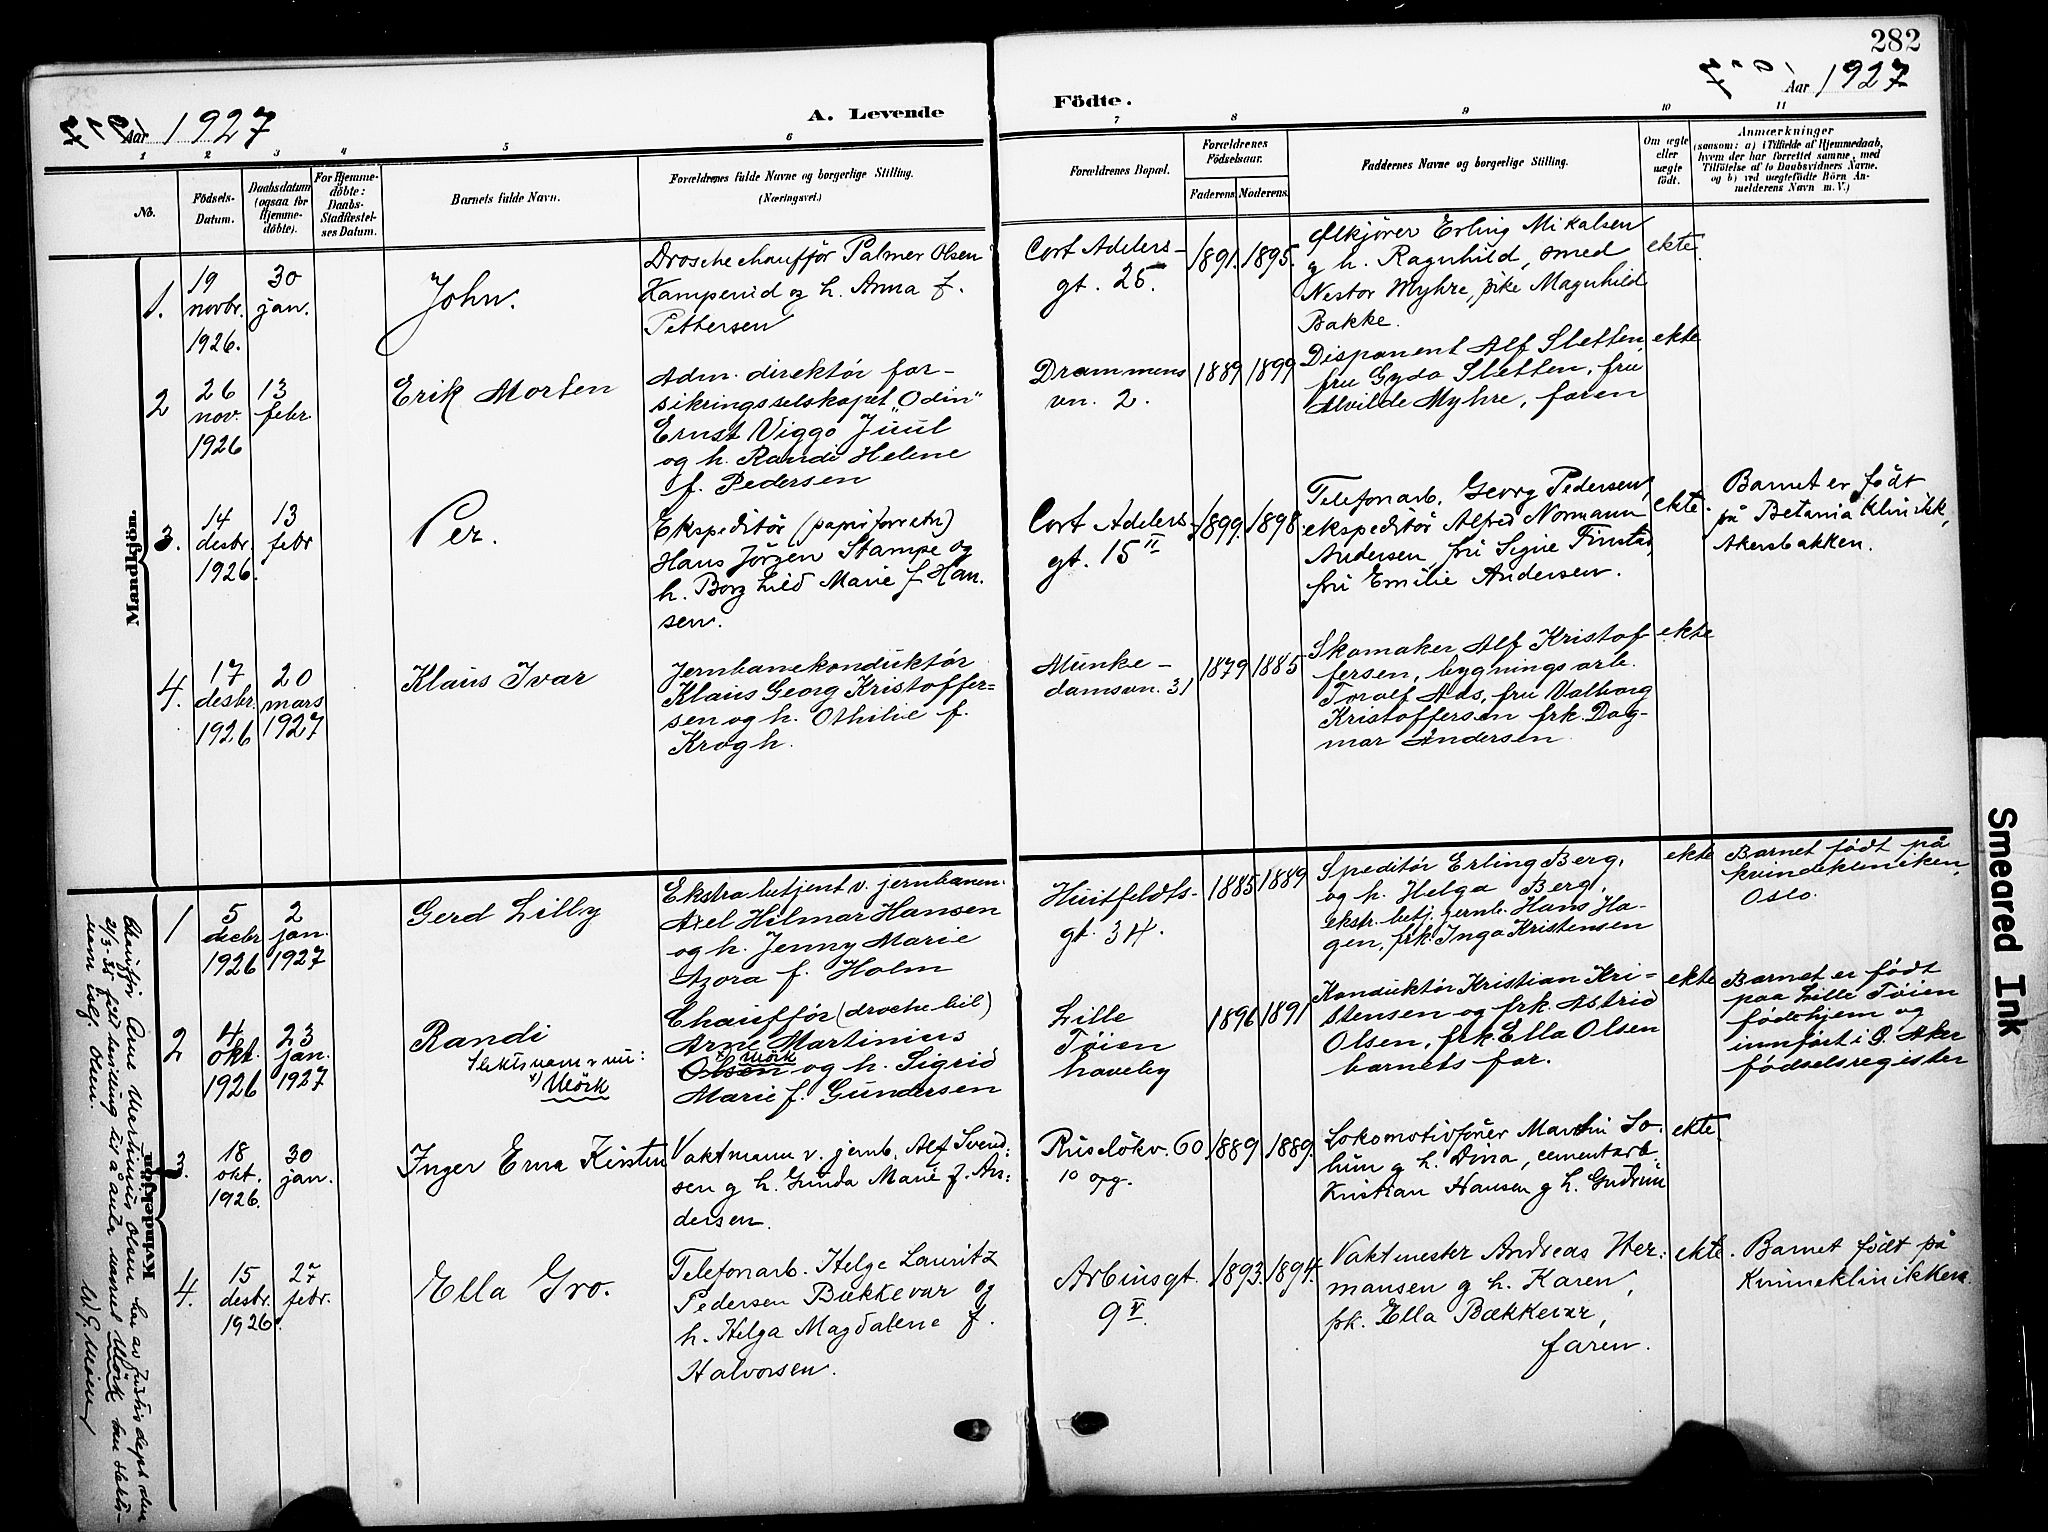 282
Aar 1927
A. Levende
Födte.
Aar 1927
1 2 3 4 5 6 7 8 9 10 11
No.
Födsels-
Datum.
Daabsdatum
(ogsaa for
Hjemme-
döbte).
For Hjemme-
döbte:
Daabs-
Stadfæstel-
ses Datum.
Barnets fulde Navn.
Forældrenes fulde Navne og borgerlige Stilling.
(Næringsvei.)
Forældrenes Bopæl.
Forældrenes
Födselsaar.
Faderens Moderens.
Faddernes Navne og borgerlige Stilling.
Om ægte
eller
uægte
födt.
Anmærkninger
(saasom: a) i Tilfælde af Hjemmedaab,
hvem der har forrettet samme, med
Tilföielse af to Daabsvidners Navne,
og b) ved uegtefödte Börn An-
melderens Navn m. V.)
Mandkjøn.
1.
19
novbr.
1926.
30
jan.
John.
Drosche chauffør Palmer Olsen
Kamperud og h. Anna f.
Pettersen
Cort Adelers-
gt. 25.
1891. 1895.
Ølkjører Erling Mikalsen
g h. Ragnhild, smed
Nestor Myhre, pike Magnhild
Bakke.
ekte.
2
26
nov.
1926
13
febr.
Erik Morten
Adm. direktør for-
sikringsselskapet "Odin"
Ernst Viggo Juul
og h. Randi Helene
f. Pedersen
Drammens
vn. 2.
1889 1899
Disponent Alf Sletten,
fru Gyda Sletten, fru
Alvilde Myhre, faren
ekte
3.
14
desbr.
1926.
13
febr
Per.
Ekspeditör (papirforretn)
Hans Jörgen Stampe og
h. Borghild Marie f. Han.
sen.
Cort Adelers-
gt. 15 II
1899. 1898.
Telefonarb. Georg Pedersen,
ekspeditör Alfred Normann
Andersen, fru Signe Finstad,
fru Emilie Andersen.
ekte.
Barnet er født
på Betania Klinikk,
Akersbakken.
4.
17
desbr.
1926
20
mars
1927
Klaus Ivar
Jernbanekonduktör
Klaus Georg Kristoffer=
sen og h. Othilie f.
Krogh.
Munke-
damsvn. 31
1879 1885
Skomaker Alf Kristof-
fersen, bygningsarb.
Toralf Aas, fru Valborg
Kristoffersen frk. Dag-
mar Andersen
ekte
Kvindekjøn.
1
5
decbr
1926
2
jan.
1927
Gerd Lilly
Ekstrabetjent v. jernbanen.
Axel Hilmar Hansen
og h. Jenny Marie
Azora f. Holm
Huitfeldts-
gt. 34.
1885 1889
Speditör Erling Berg,
og h. Helga Berg,
ekstr. betj. jernb. Hans Ha-
gen, frk. Inga Kristensen
ekte
Barnet født på
kvindekliniken,
Oslo.
2
4
okt.
1926
23
jan.
1927
Randi
Slektsnavn nu:
Mörk
Chauffør (drochebil)
Arne Martinius
Mörk
Olsen og h. Sigrid
Marie f. Gundersen
Lille
Tøien
haveby
1896 1891
Konduktör Kristian Kri-
stensen og frk. Astrid
Olsen, frk. Ella Olsen
barnets far.
ekte
Barnet er født
paa Lille Tøien
fødehjem og
innført i Ø. Aker
fødselsregister
3.
18
okt.
1926.
30
jan.
Inger Erna Kirsten
Vaktmann v. jernb. Alf Svend:
sen g h. Gunda Marie f. An:
dersen.
Ruseløkv. 60
10 opg.
1889 1889.
Lokomotivfører Martin So-
lum g h. Dina, cementarb.
Kristian Hansen g h. Gudrun
ekte.
4.
15
desbr.
1926.
27
febr.
Ella Gro.
Telefonarb. Helge Lauritz
Pedersen Bækkevar og
h. Helga Magdalene f.
Halvorsen.
Arbinsgt.
9 V.
1893. 1894.
Vaktmester Andreas Her:
mansen g h. Karen,
frk. Ella Bækkevar,
faren.
ekte.
Barnet født på
Kvinneklinikken
Chauffør Arne Martinius Olsen har av Justisdept. den
21/3-35 fått bevilling til å anta navnet Mörk som slekts-
navn istf. Olsen.
Smeared Ink